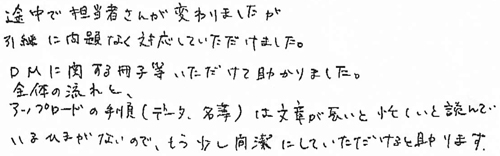 途中で担当者さんが変わりましたが
引継に問題なく対応していただけました。
DMに関する冊子等いただけて助かりました。
全体の流れと、
アップロードの手順(データ、名簿)は文章が長いと忙しいと読んで
いるひまがないので、もう少し簡潔にしていただけると助かります。